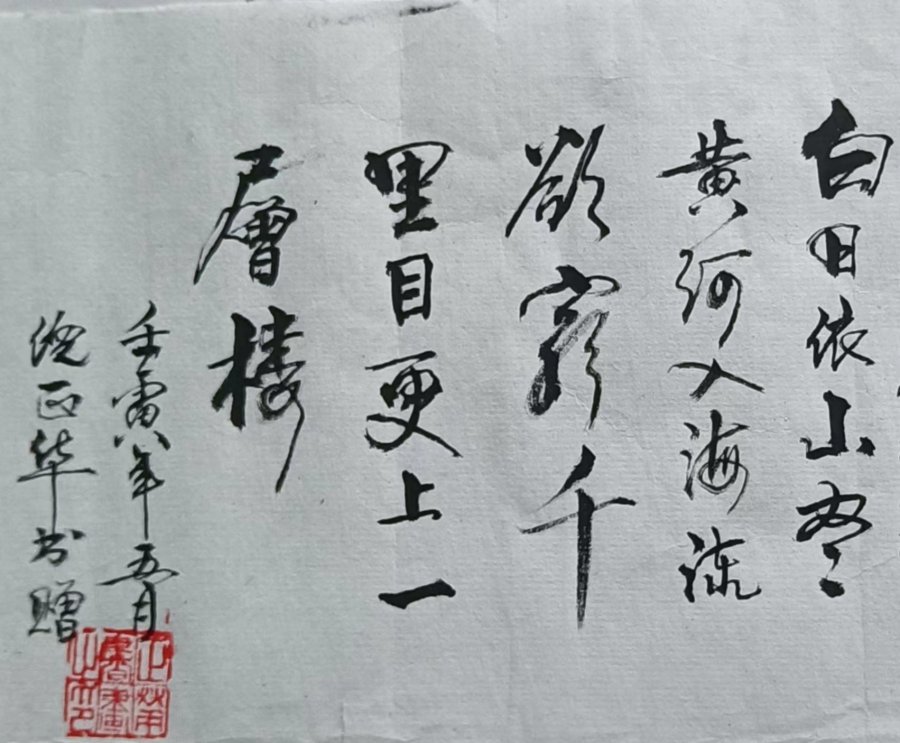 白日依山尽
黄河入海流
欲穷千
里目更上一
層楼
壬寅年五月
倪正华书赠